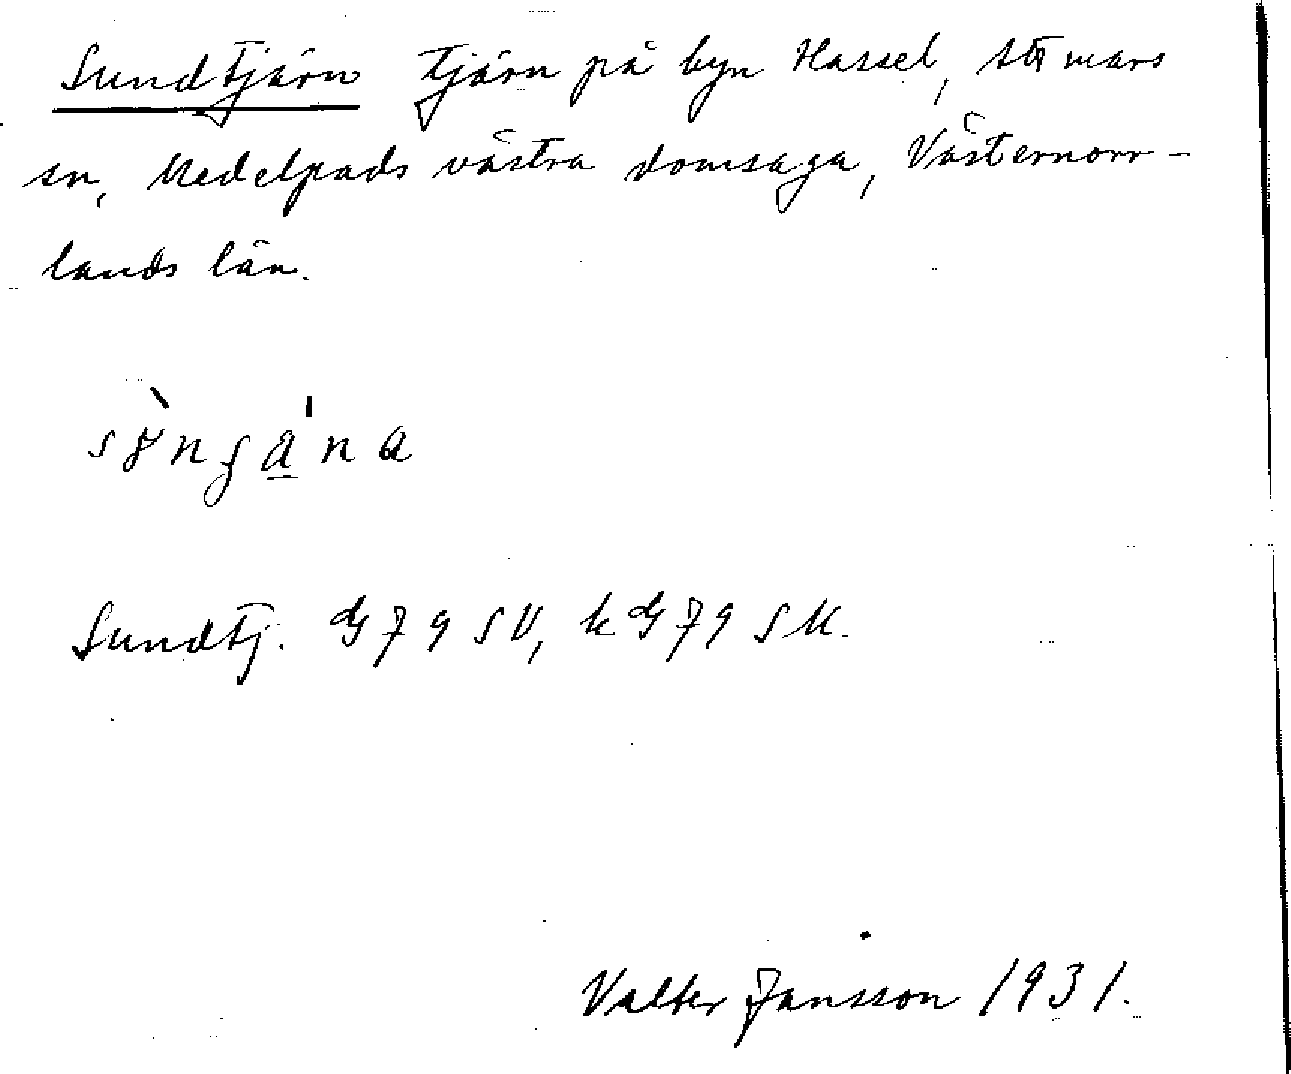 Sundtjärn Tjärn på byn Hassel, Attmars
sn, Medelpads västra domsaga, Västernorr-
lands län.
Sundtj. G79 SV, kG79 SK.
Valter Jansson 1931.